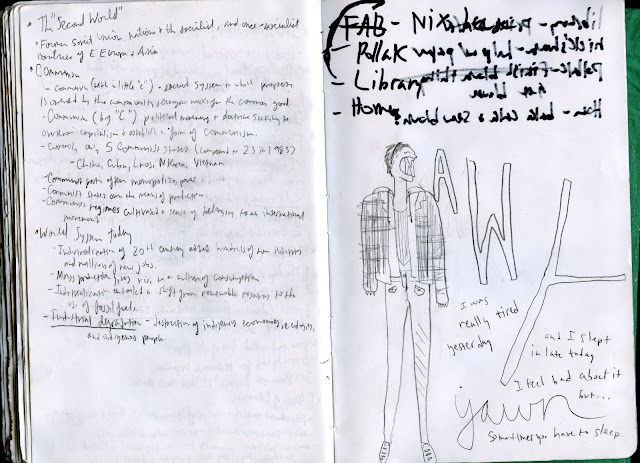 • The "Second World"
• Former Soviet Union nations & the socialist, and once-socialist
countries of E. Europe & Asia
• Communism
- communism (with a little "c") - social system in which property
is owned by the community & people work for the common good.
- Communism (big "C") political movement & doctrine seeking to
overthrow capitalism & establish a form of Communism.
- Currently only 5 Communist states (compared to 23 in 1985)
- China, Cuba, Laos, N Korea, Vietnam
- Communist party often monopolizes power
- Communist states own the means of production
- Communist regimes cultivated a sense of belonging to an international
movement
• World System Today
- Industrialization of 20th century added hundreds of new industries
and millions of new jobs.
- Mass production gives rise to a culture of consumption
- Industrialization entailed a shift from renewable resources to the
use of fossil fuels
- Industrial degradation - destruction of indigenous economies, ecologies,
and indigenous people
- FAB - Nix
- Pollak
- Library
- Home
AWY
I was
really tired
yesterday
and I slept
in late today
I feel bad about it
but...
yawn
sometimes you have to sleep.